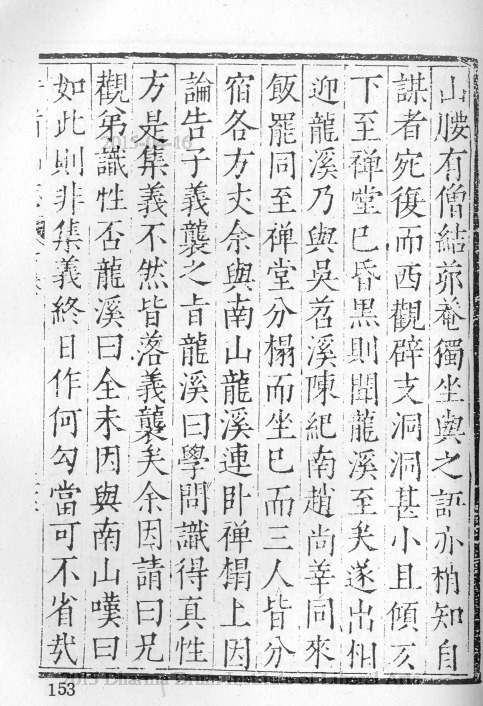 山腰有僧結茆菴獨坐與之語亦稍知自
謀者宛復而西觀辟支洞洞甚小且傾仄
下至禅堂已昏黒則聞龍溪至矣遂出相
迎龍溪乃與吳苕溪陳紀南趙尚莘同來
飯罷同至禅堂分榻而坐已而三人皆分
宿各方丈余與南山龍溪連卧禅榻上因
論告子義襲之旨龍溪曰學問識得真性
方是集義不然皆落義襲矣余因請曰兄
觀弟識性否龍溪曰全未因與南山嘆曰
如此則非集義終日作何勾當可不省哉
153